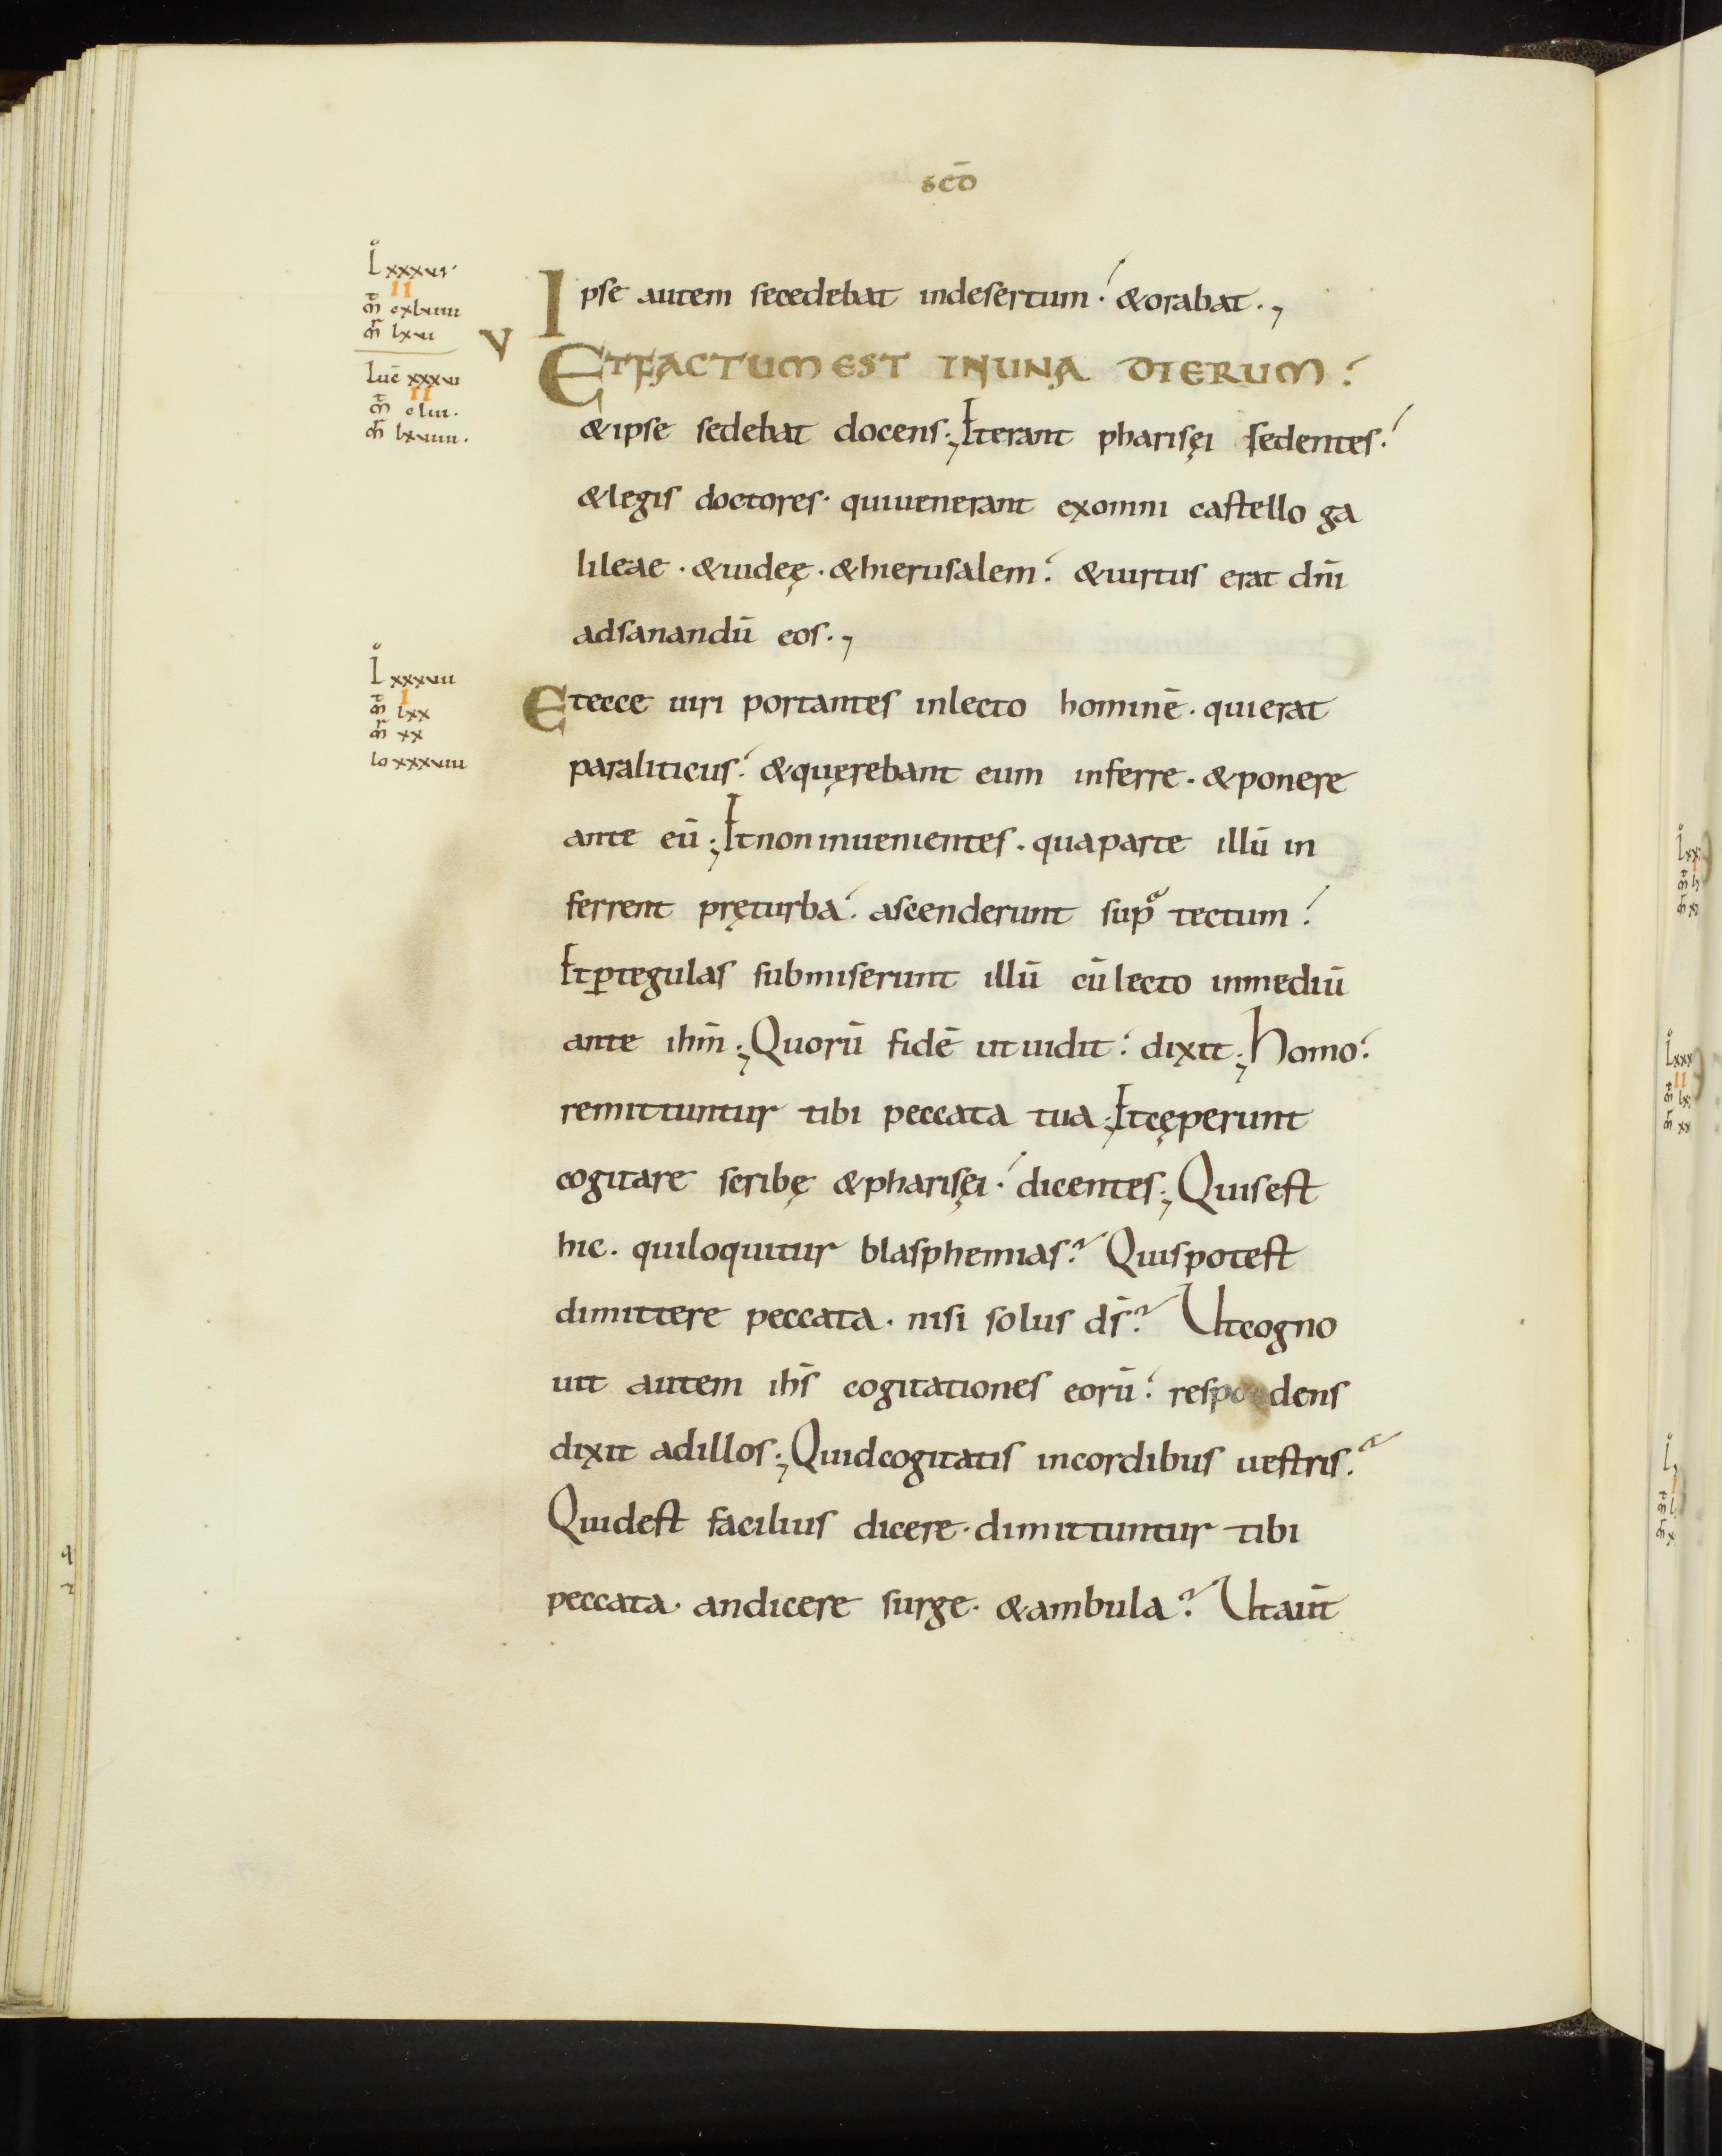 scō
L̊ xxxvi·
II
m̄ cxlviiii
m̄r lxvi
V
Ipse autem secedebat indesertum· &orabat·,
luc̄ xxxvi
II
m̄ clii·
m̄r lxviiii·
ETFACTUM EST INUNA DIERUM·
&ipse sedebat docens·, Et erant pharisęi sedentes·
&legis doctores· quiuenerant exomni castello ga
lileae· &iudeę· &hierusalem· &uirtus erat dn̄i
adsanandū eos·,
L̊ xxxvii
I
m̄ lxx
m̄r xx
Io xxxviii
Etecce uiri portantes inlecto hominē· quierat
paraliticus· &quęrebant eum inferre· &ponere
ante eū·, Etnon inuenientes· quaparte illū in
ferrent pręturbā· ascenderunt sup̄ tectum·
Etꝑtegulas submiserunt illū cūlecto inmediū
ante ihm̄·, Quorū fidē utuidit· dixit·, Homo·
remittuntur tibi peccata tua·, Etcęperunt
cogitare scribę &pharisęi· dicentes·, Quisest
hic· quiloquitur blasphemias? Quispotest
dimittere peccata· nisi solus ds̄? Utcogno
uit autem ihs̄ cogitationes eorū· respondens
dixit adillos·, Quidcogitatis incordibus uestris?
Quidest facilius dicere· dimittuntur tibi
peccata· andicere surge· &ambula? Utaut̄